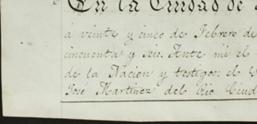 En la Ciudad de
á veinte y cinco de Febrero de
cincuenta y seis. Ante mi el
de la Nacion y testigos: el
José Martinez del Rio Ciud